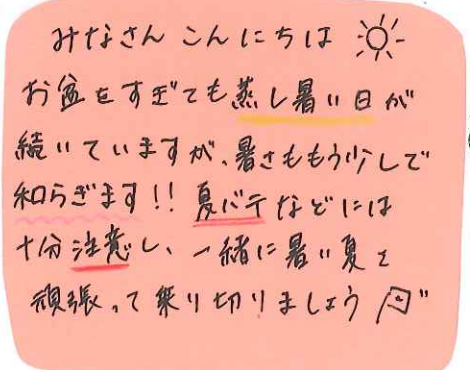 みなさん こんにちは
お盆をすぎても蒸し暑い日が
続いていますが、暑さももう少しで
和らぎます!! 夏バテなどには
十分注意し、一緒に暑い夏を
頑張って乗り切りましょう